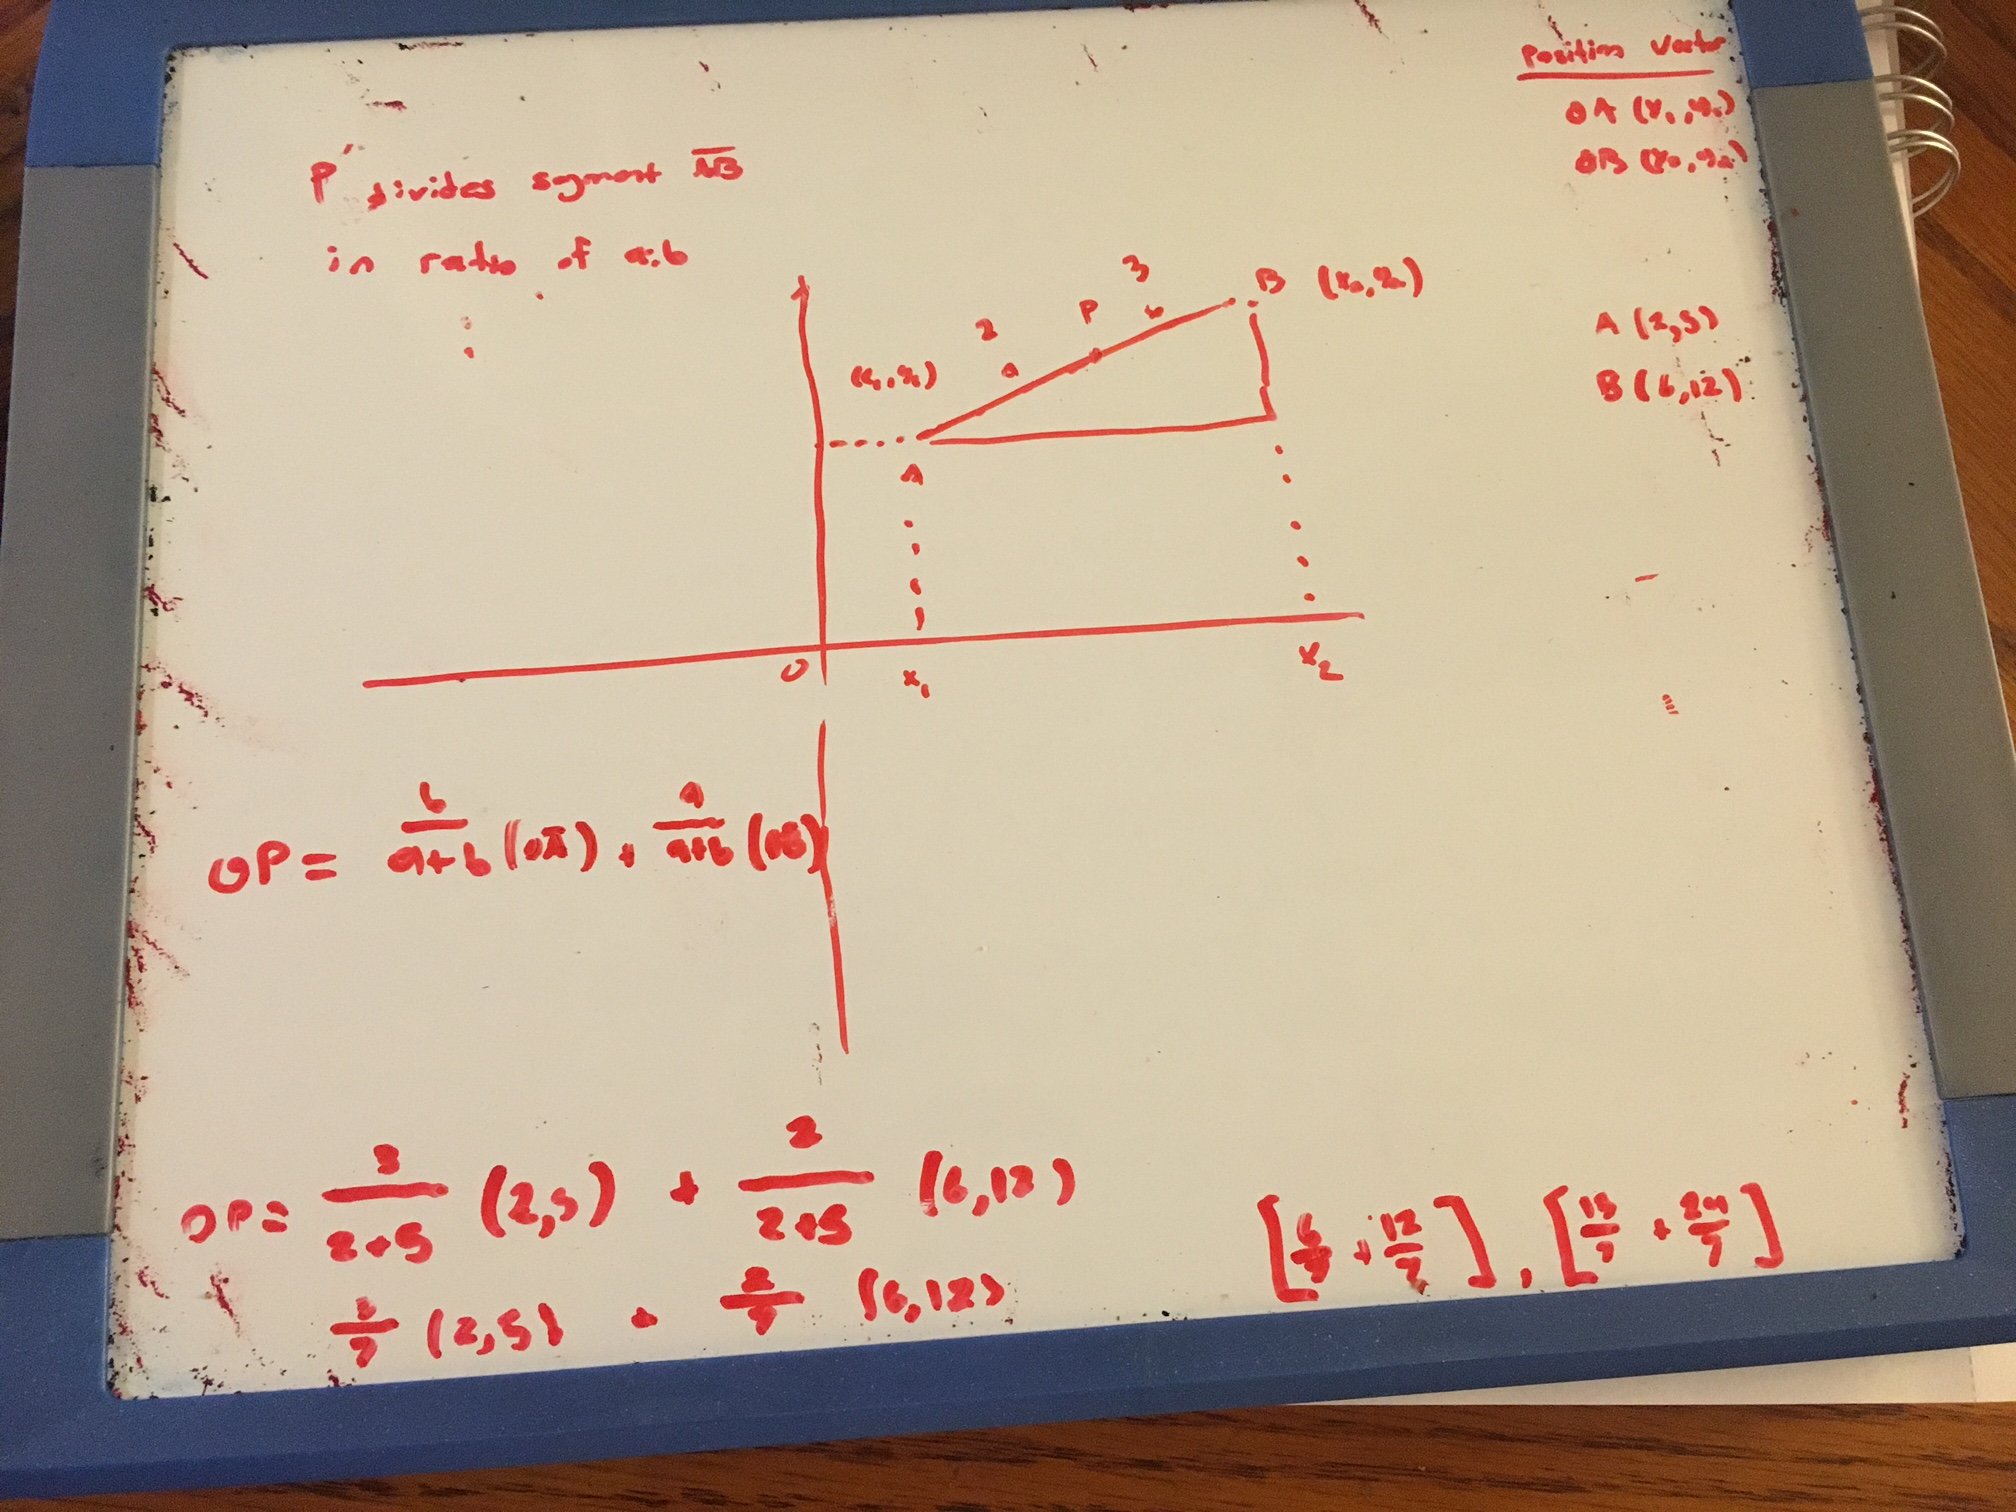 Position Vector
OA (x₁, y₁)
OB (x₂, y₂)
P divides segment AB
in ratio of a:b
A (2,5)
B (6,12)
3
B (x₂, y₂)
2
P
b
a
(x₁, y₁)
A
O
x₁
x₂
OP = b/a+b (OA) + a/a+b (OB)
OP = 3/2+5 (2,5) + 2/2+5 (6,12)
3/7 (2,5) + 2/7 (6,12)
[6/7 + 12/7], [15/7 + 24/7]